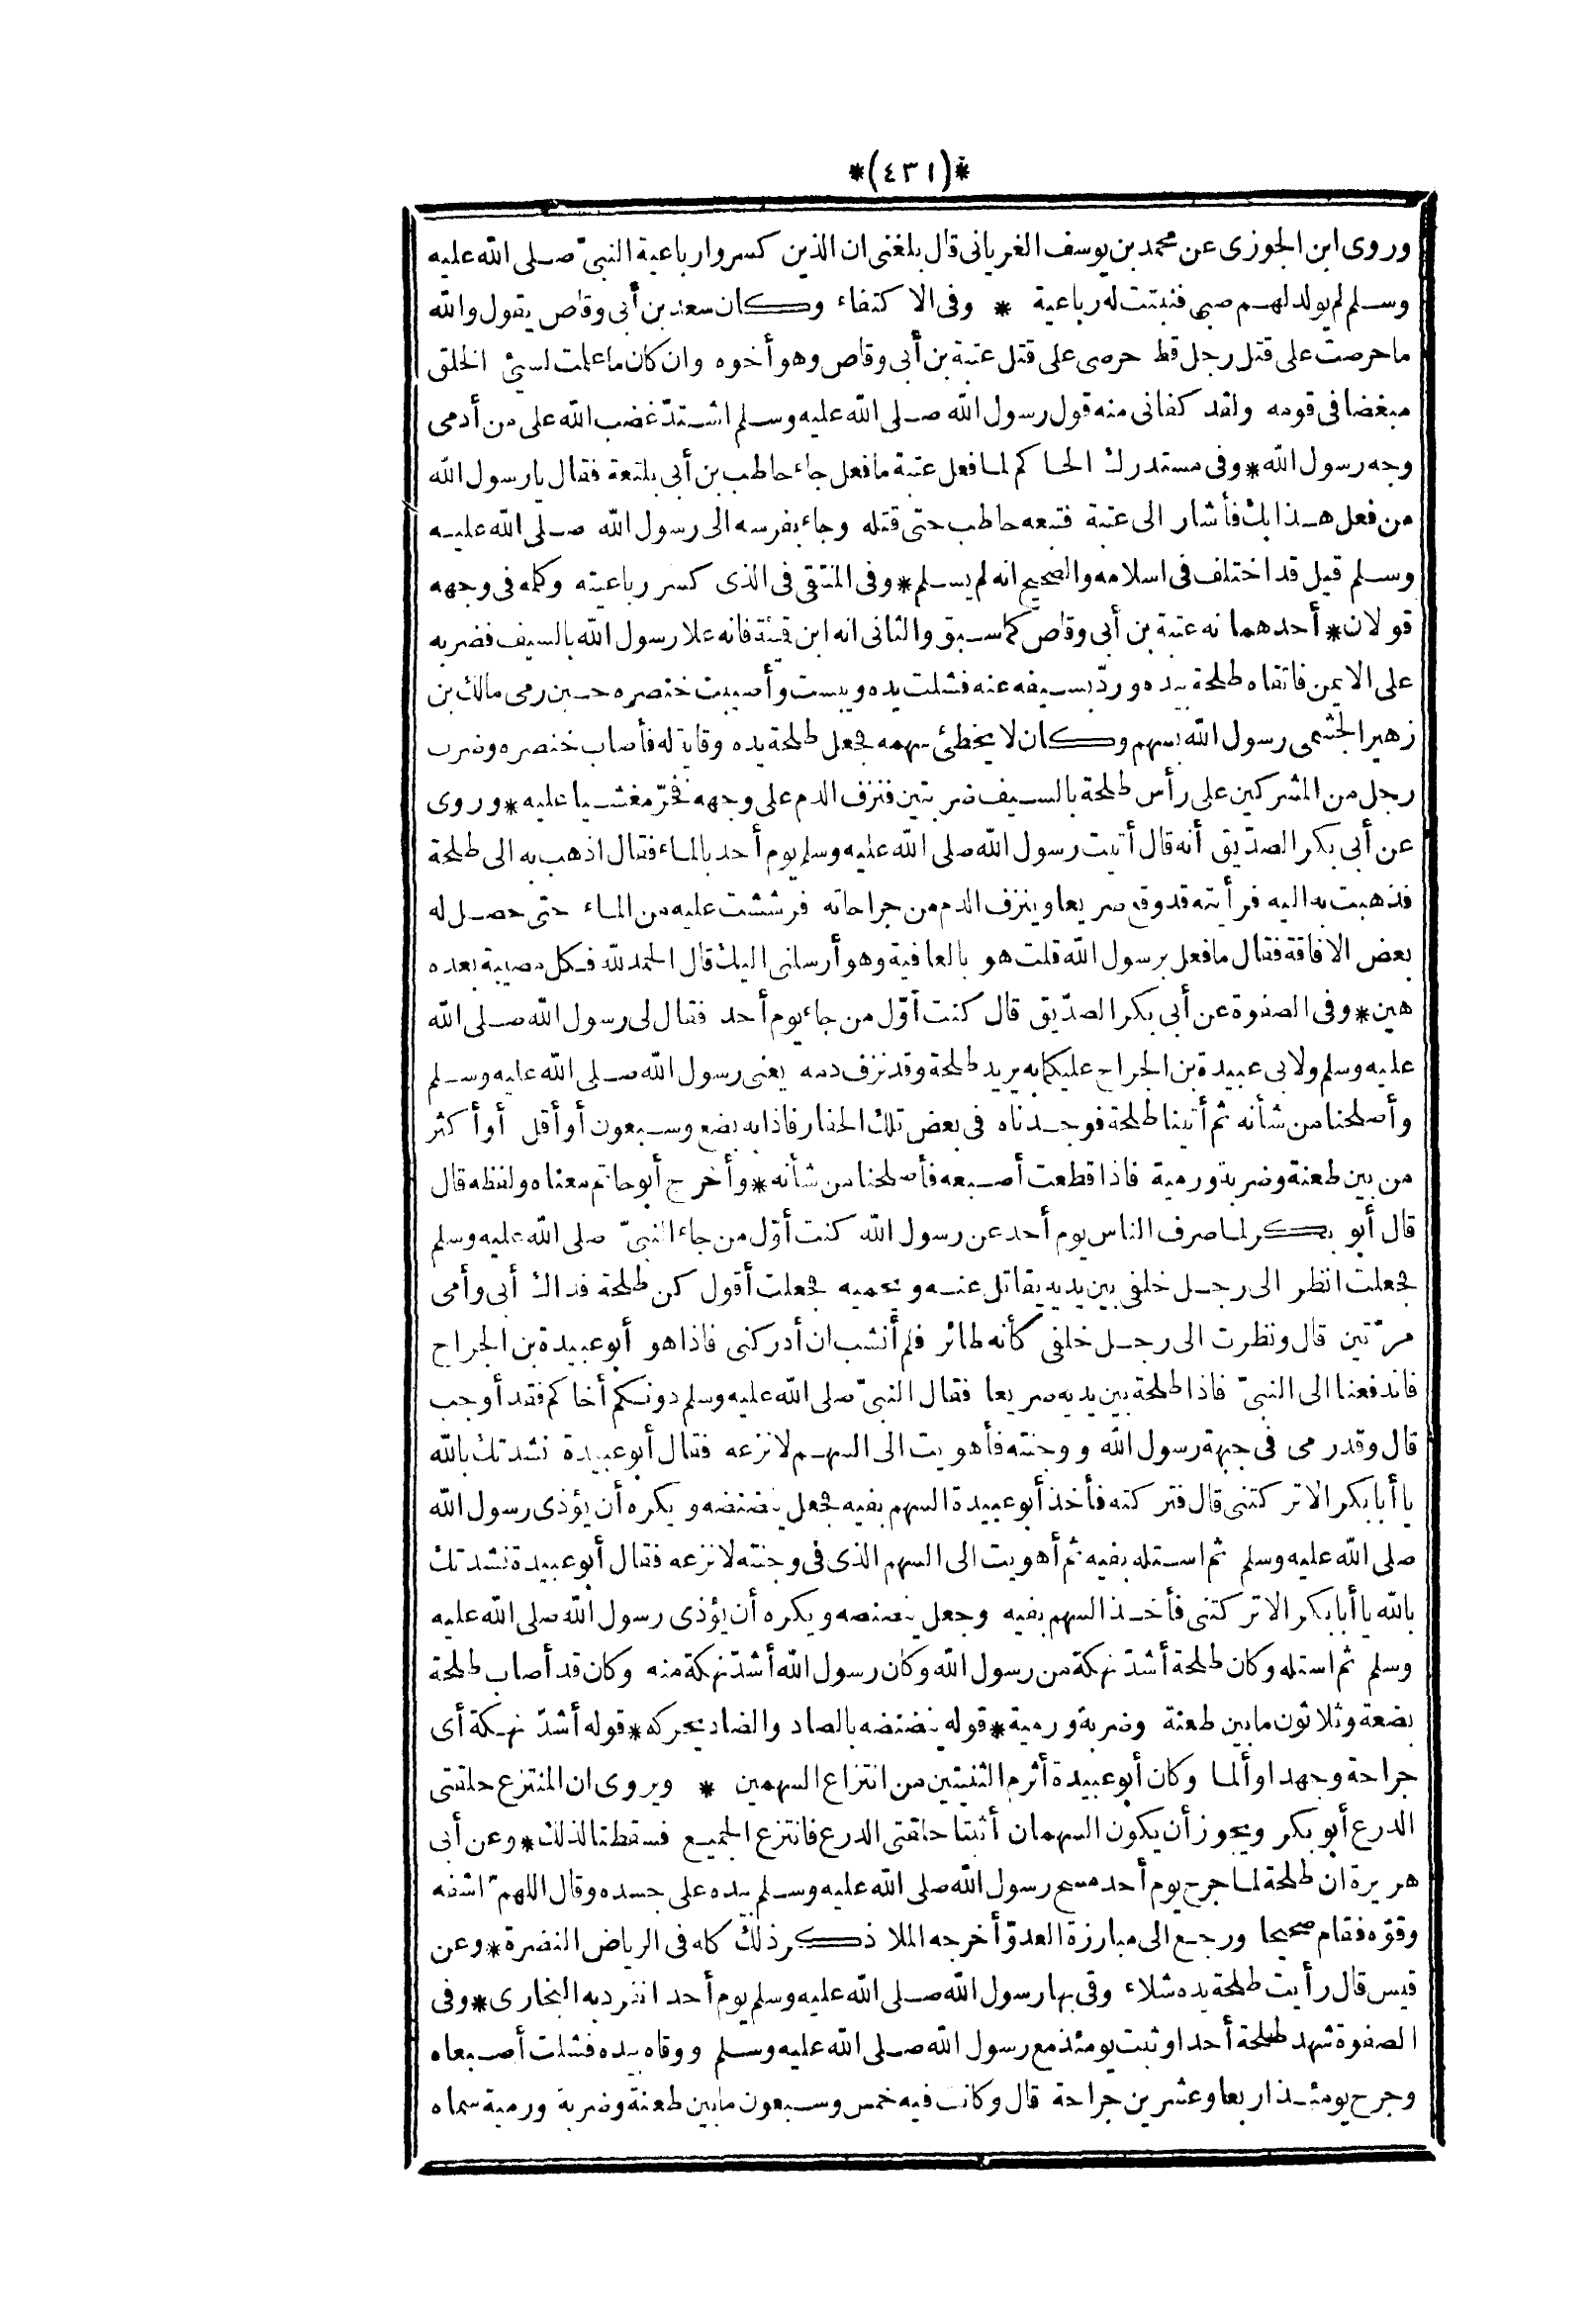 *(٤٣١)*
وروى ابن الجوزى عن محمد بن يوسف الغريانى قال بلغنى ان الذين كسروا رباعية النبىّ صلى الله عليه
وسلم لم يولد لهم صبى فنبتت له رباعية * وفى الاكتفاء وكان سعد بن أبى وقاص يقول والله
ما حرصت على قتل رجل قط حرصى على قتل عتبة بن أبى وقاص وهو أخوه وان كان ما علمت لسيئ الخلق
مبغضا فى قومه ولقد كفانى منه قول رسول الله صلى الله عليه وسلم اشتدّ غضب الله على من أدمى
وجه رسول الله * وفى مستدرك الحاكم لما فعل عتبة ما فعل جاء حاطب بن أبى بلتعة فقال يا رسول الله
من فعل هذا بك فأشار الى عتبة فتبعه حاطب حتى قتله وجاء بفرسه الى رسول الله صلى الله عليه
وسلم قيل قد اختلف فى اسلامه والصحيح انه لم يسلم * وفى المنتقى فى الذى كسر رباعيته وكلمه فى وجهه
قولان * أحدهما انه عتبة بن أبى وقاص كما سبق والثانى انه ابن قمئة فانه علا رسول الله بالسيف فضربه
على الايمن فاتقاه طلحة بيده وردّ بسيفه عنه فشلت يده ويبست وأصيبت خنصره حين رمى مالك بن
زهير الجشمى رسول الله بسهم وكان لا يخطئ سهمه فجعل طلحة يده وقاية له فأصاب خنصره وضرب
رجل من المشركين على رأس طلحة بالسيف ضربتين فنزف الدم على وجهه فخرّ مغشيا عليه * وروى
عن أبى بكر الصدّيق أنه قال أتيت رسول الله صلى الله عليه وسلم يوم أحد بالماء فقال اذهب به الى طلحة
فذهبت به اليه فرأيته قد وقع صريعا وينزف الدم من جراحاته فرششت عليه من الماء حتى حصل له
بعض الافاقة فقال ما فعل برسول الله قلت هو بالعافية وهو أرسلنى اليك قال الحمد لله فكل مصيبة بعده
هين * وفى الصفوة عن أبى بكر الصدّيق قال كنت أوّل من جاء يوم أحد فقال لى رسول الله صلى الله
عليه وسلم ولابى عبيدة بن الجراح عليكما به يريد طلحة وقد نزف دمه يعنى رسول الله صلى الله عليه وسلم
وأصلحنا من شأنه ثم أتينا طلحة فوجدناه فى بعض تلك الحفار فاذا به بضع وسبعون أو أقل أو أكثر
من بين طعنة وضربة ورمية فاذا قطعت أصبعه فأصلحنا من شأنه * وأخرج أبو حاتم معناه ولفظه قال
قال أبو بكر لما صرف الناس يوم أحد عن رسول الله كنت أوّل من جاء النبىّ صلى الله عليه وسلم
فجعلت انظر الى رجل خلفى بين يديه يقاتل عنه ويحميه فجعلت أقول كن طلحة فداك أبى وأمى
مرّتين قال ونظرت الى رجل خلفى كأنه طائر فلم أنشب ان أدركنى فاذا هو أبو عبيدة بن الجراح
فاندفعنا الى النبىّ فاذا طلحة بين يديه صريعا فقال النبىّ صلى الله عليه وسلم دونكم أخاكم فقد أوجب
قال وقد رمى فى جبهة رسول الله ووجنته فأهويت الى السهم لانزعه فقال أبو عبيدة نشدتك بالله
يا أبا بكر الا تركتنى قال فتركته فأخذ أبو عبيدة السهم بفيه فجعل ينضنضه ويكره أن يؤذى رسول الله
صلى الله عليه وسلم ثم استله بفيه ثم أهويت الى السهم الذى فى وجنته لانزعه فقال أبو عبيدة نشدتك
بالله يا أبا بكر الا تركتنى فأخذ السهم بفيه وجعل ينصنصه ويكره أن يؤذى رسول الله صلى الله عليه
وسلم ثم استله وكان طلحة أشدّ نهكة من رسول الله وكان رسول الله أشدّ نهكة منه وكان قد أصاب طلحة
بضعة وثلاثون ما بين طعنة وضربة ورمية * قوله ينضنضه بالصاد والضاد يحركه * قوله أشدّ نهكة أى
جراحة وجهدا وألما وكان أبو عبيدة أثرم الثنيتين من انتزاع السهمين * ويروى ان المنتزع حلقتى
الدرع أبو بكر ويجوز أن يكون السهمان أثبتا حلقتى الدرع فانتزع الجميع فسقطتا لذلك * وعن أبى
هريرة ان طلحة لما جرح يوم أحد مسح رسول الله صلى الله عليه وسلم بيده على جسده وقال اللهمّ اشفه
وقوّه فقام صحيحا ورجع الى مبارزة العدوّ أخرجه الملا ذكر ذلك كله فى الرياض النضرة * وعن
قيس قال رأيت طلحة يده شلاء وقى بها رسول الله صلى الله عليه وسلم يوم أحد انفرد به البخارى * وفى
الصفوة شهد طلحة أحدا وثبت يومئذ مع رسول الله صلى الله عليه وسلم ووقاه بيده فشلت أصبعاه
وجرح يومئذ اربعا وعشرين جراحة قال وكانت فيه خمس وسبعون ما بين طعنة وضربة ورمية سماه